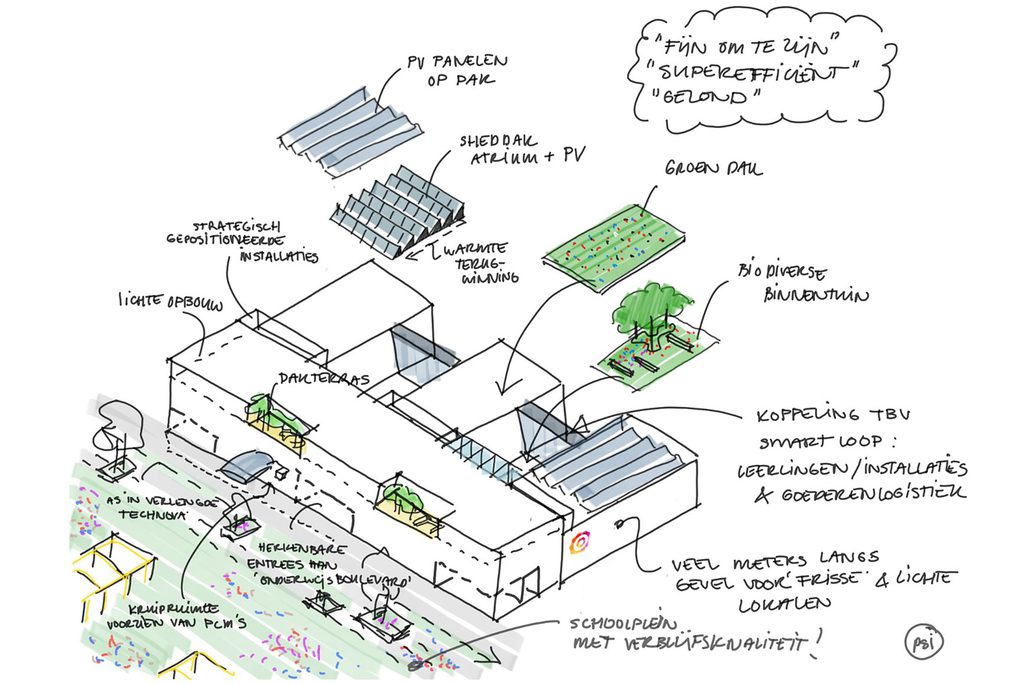 "FIJN OM TE ZIJN"
"SUPEREFFICIËNT"
"GEZOND"
PV PANELEN
OP DAK
SHEDDAK
ATRIUM + PV
GROEN DAK
STRATEGISCH
GEPOSITIONEERDE
INSTALLATIES
WARMTE
TERUG-
WINNING
BIODIVERSE
BINNENTUIN
LICHTE OPBOUW
DAKTERRAS
KOPPELING TBV
SMART LOOP:
LEERLINGEN/INSTALLATIES
& GOEDERENLOGISTIEK
AS IN VERLENGDE
TECHNOVA
HERKENBARE
ENTREES AAN
'ONDERWIJSBOULEVARD'
VEEL METERS LANGS
GEVEL VOOR 'FRISSE' & LICHTE
LOKALEN
KRUIPRUIMTE
VOORZIEN VAN PCM'S
SCHOOLPLEIN
MET VERBLIJFSKWALITEIT!
PSI